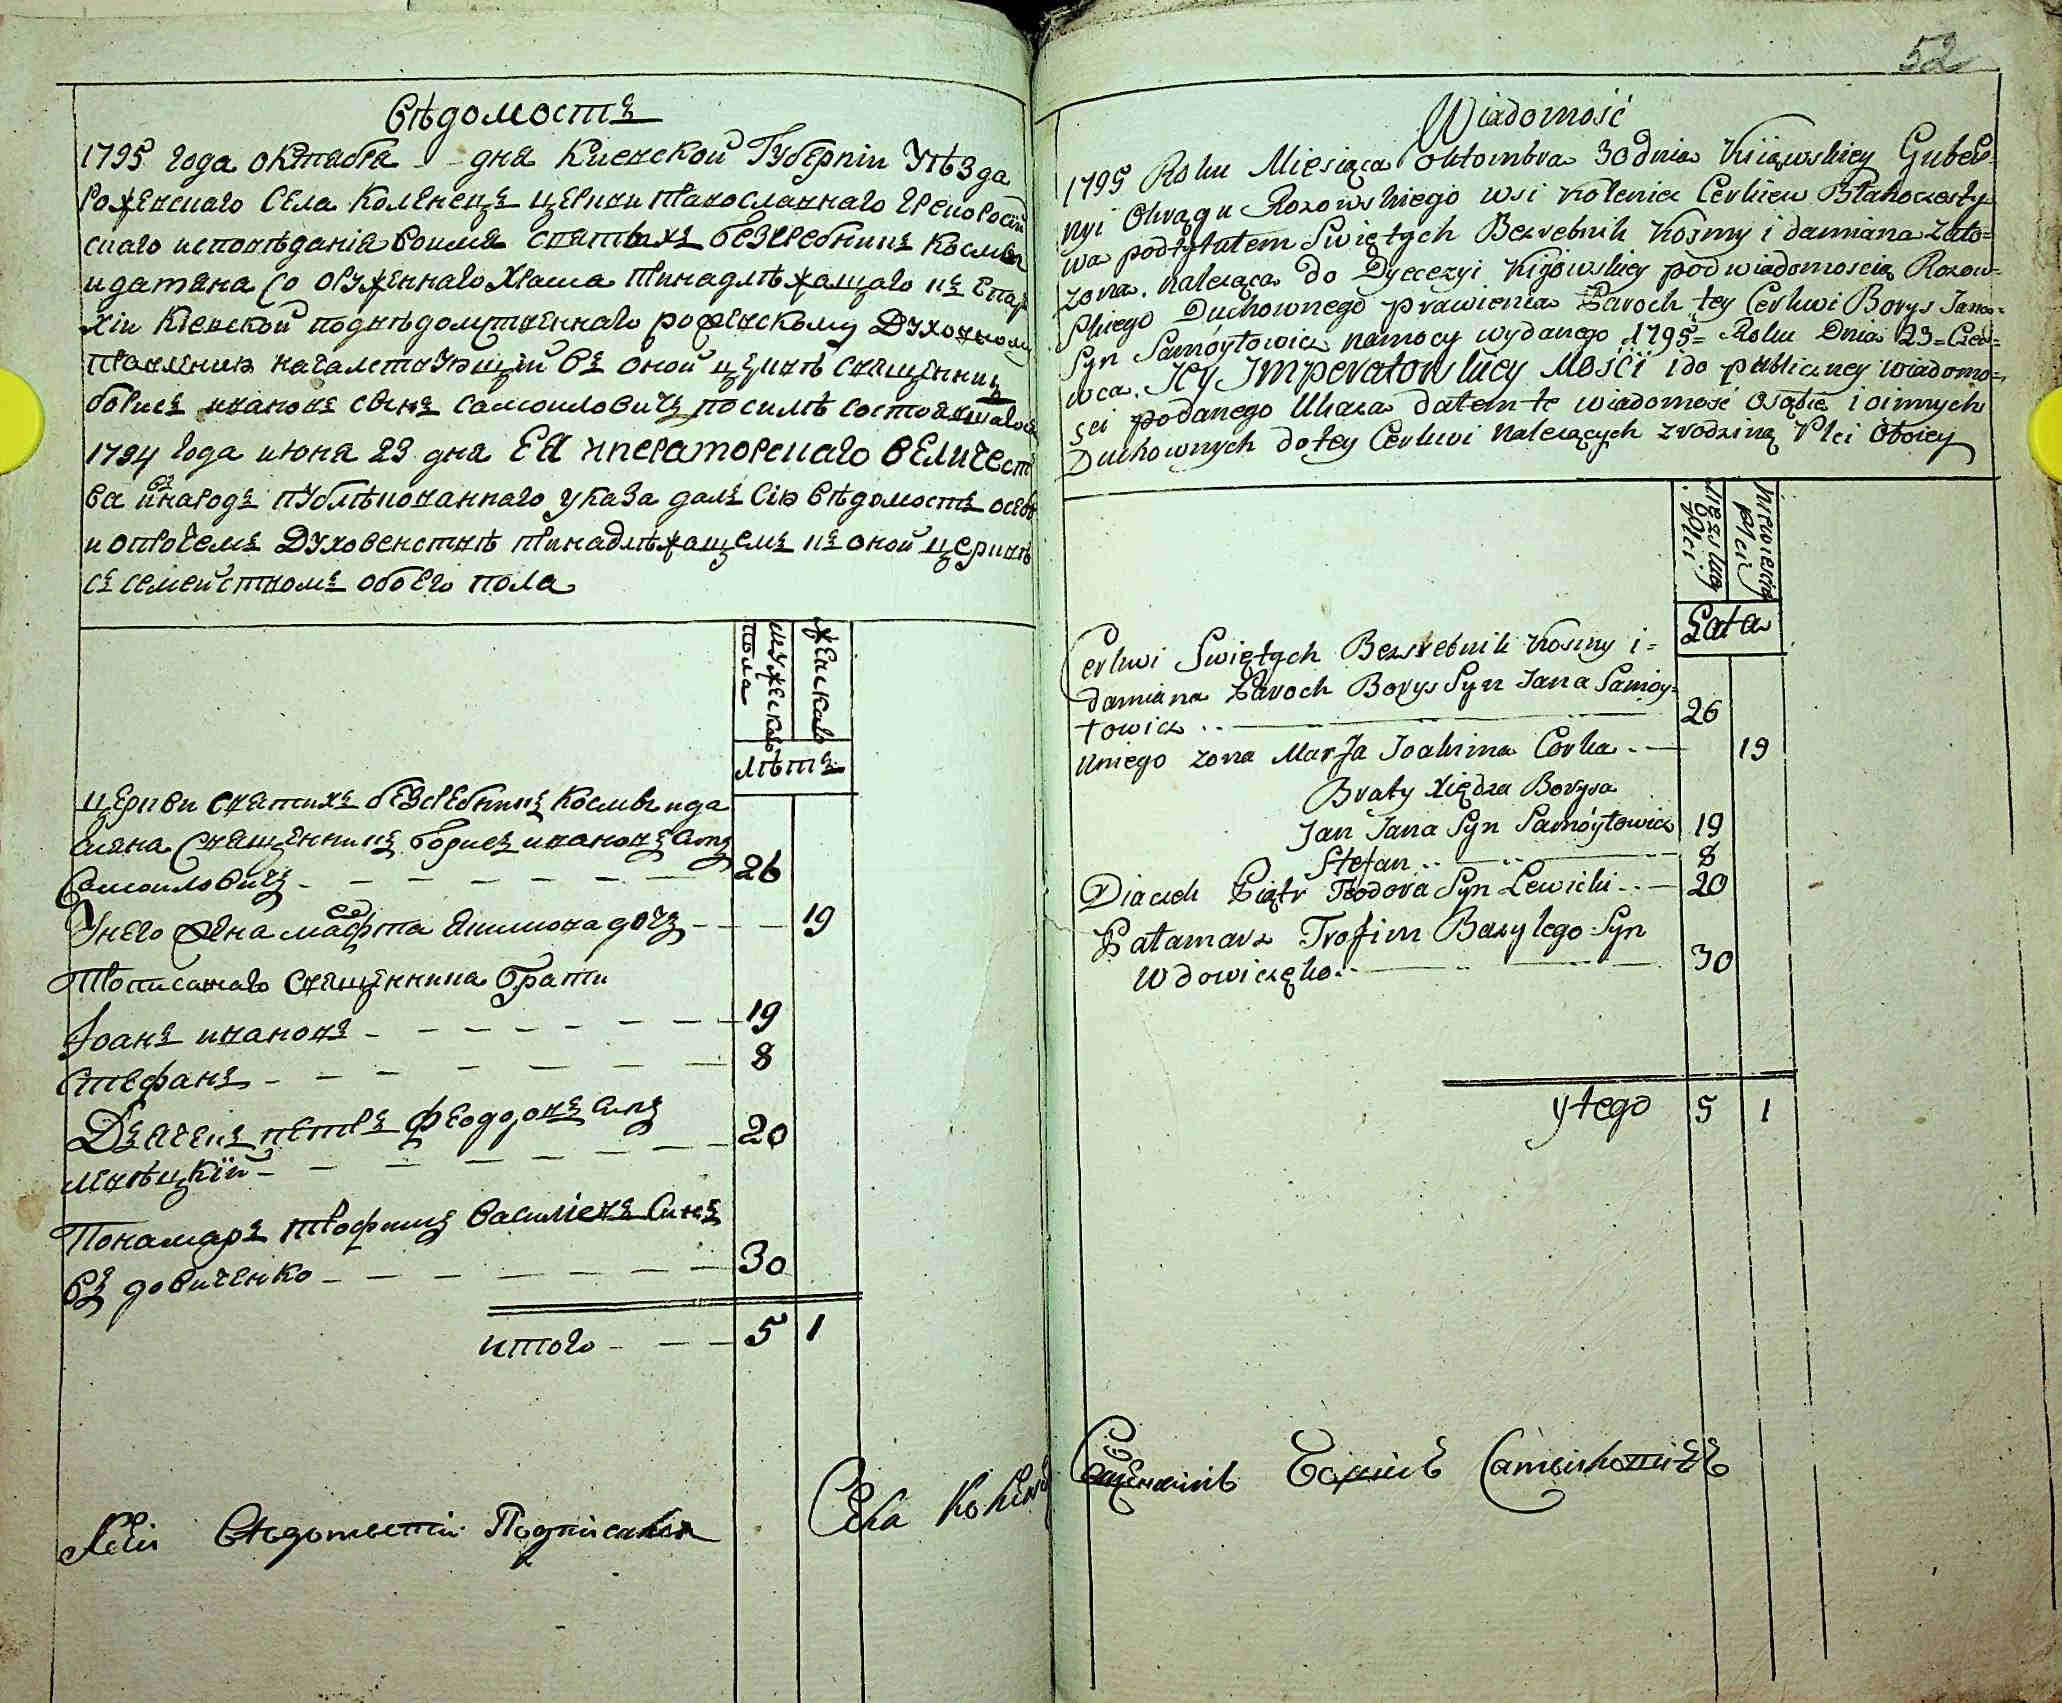 Вѣдомостъ
1795 года октабра - - дня Киевской Губернїи Уѣзда
Роженского Села Коленецъ церкви православнаго грекоросий
скаго исповѣданїя воимя святыхъ безсребникъ Космы
и дамяна сооруженнаго храма принадлѣжащаго къ епар
хїи Кїевской подвѣдомственнаго роженскому Духовному
правлению началствующїй въ оной церквѣ священникъ
борисъ ивановъ синъ самоиловичъ по силѣ состоявшагося
1794 года июня 23 дня ЕЯ императорскаго величест
ва въ народъ публѣкованнаго указа далъ сїю вѣдомость о себѣ
и опрочемъ Духовенствѣ принадлѣжащемъ къ оной церквѣ
съ семействомъ обоего пола
мужеска пола
женскаго
лѣтъ
церкви святихъ безсребникъ Космы и да
мяна Священникъ борисъ ивановъ синъ
Самоиловичъ - - - - - - 26
У него жена марфта якимова дочъ - - - 19
Прописанаго священника брати
Іоанъ ивановъ - - - - - - - 19
Стефанъ - - - - - - - 8
Дъячекъ петръ феодоровъ синъ
левѣцкїй - - - - - - - 20
Пономаръ трофимъ василїевъ Синъ
въдовиченко - - - - - - - 30
итого - - - 5 1
Ксей Вѣдомости Подписался
Села Колѣнец
52
Wiadomość
1795 Roku Miesiąca Oktombra 30 dnia Kiiąwskiey Guber=
nyi Okrągu Rozowskiego wsi Kolenca Cerkiew Błahoczesty
wa podtytułem Swiętych Bezrebnik Kozmy i damiana Zało=
zona. należąca do Dyecezyi Kijowskiey pod wiadomoscią Rozow=
skiego Duchownego prawienia Paroch tey Cerkwi Borys Jana=
Syn Samoyłowicz namocy wydanego 1795= Roku Dnia 23= Czer=
wca. Jey Imperatorskiey Mości i do publiczney wiadomo=
sci podanego Ukaza dałem te wiadomość osąbie i oinnych
Duchownych do tey Cerkwi Należących zrodziną Płci Oboiey
męzskiey płci.
niewieściey płci
Lata
Cerkwi Swiętych Bezsrebnik Kozmy i=
damiana Paroch Borys Syn Jana Samoy=
łowicz .. 26
Uniego zona Marja Joakima Corka .- 19
Braty Xiędza Borysa
Jan Jana Syn Samoyłowicz 19
Stefan .. 8
Diaczek Piątr Teodora Syn Lewicki .. - 20
Patamarz Trofim Bazylego Syn
Wdowiczęko .. 30
ytego 5 1
Священникъ Борисъ Самойловичъ